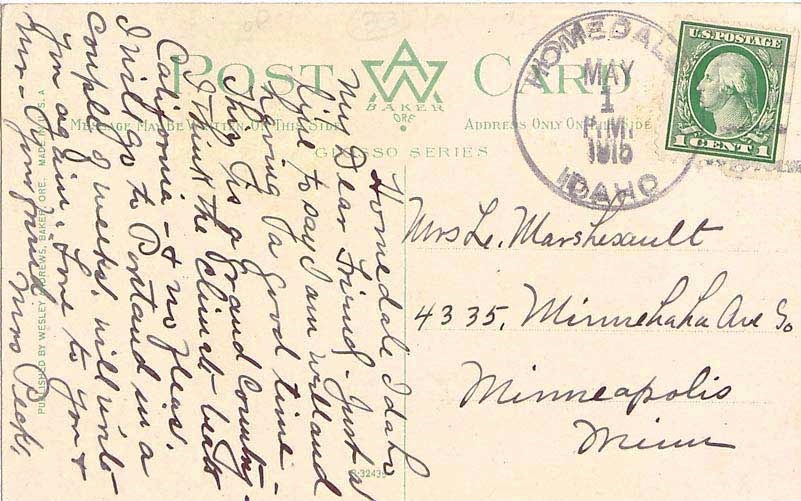 POST CARD
BAKER
ORE.
MESSAGE MAY BE WRITTEN ON THIS SIDE
ADDRESS ONLY ON THIS SIDE
GLOSSO SERIES
HOMEDALE
MAY
1
P.M.
1915
IDAHO
U.S. POSTAGE
1 CENT 1
Mrs Le. Marshesault
4335, Minnehaha Ave So
Minneapolis
Minn
Homedale Idaho
My Dear Friend - Just a
line to say I am well and
having a good time -
This is a grand country -
I think the climate beats
California - & no fleas.
I will go to Portland in a
couple of weeks. will write
you again. Love to you &
Mr - Your friend
Mrs Peck,
PUBLISHED BY WESLEY ANDREWS, BAKER, ORE. MADE IN U.S.A
R-32435